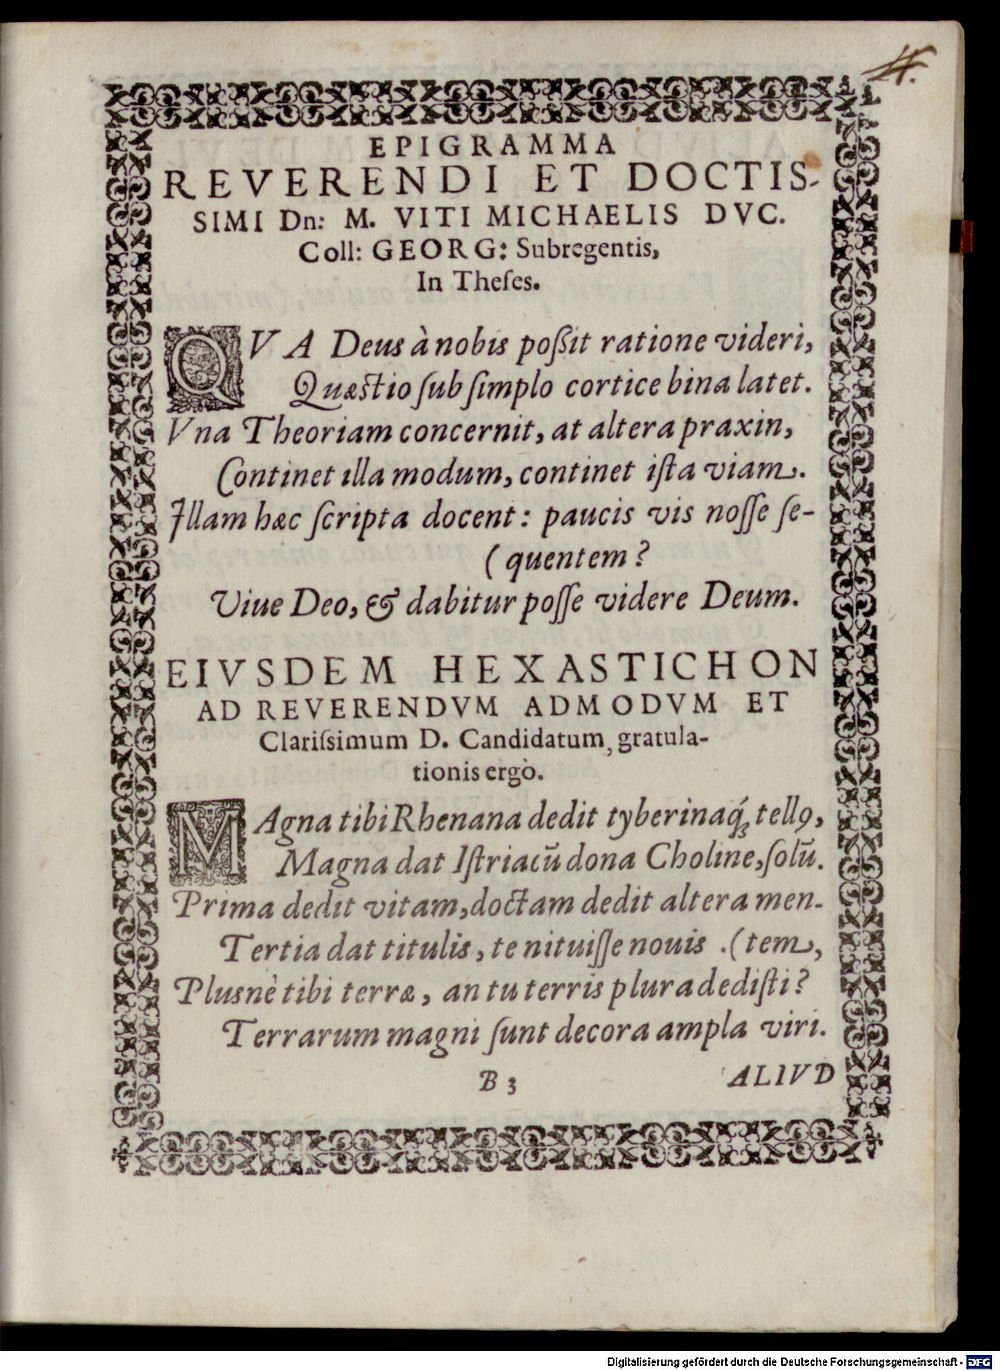 EPIGRAMMA
REVERENDI ET DOCTIS-
SIMI Dn: M. VITI MICHAELIS DVC.
Coll: GEORG: Subregentis,
In Theſes.
QVA Deus à nobis poßit ratione videri,
Quæstio ſub ſimplo cortice bina latet.
Vna Theoriam concernit, at altera praxin,
Continet illa modum, continet iſta viam.
Illam hæc ſcripta docent: paucis vis noſſe ſe-
(quentem?
Viue Deo, & dabitur poſſe videre Deum.
EIVSDEM HEXASTICHON
AD REVERENDVM ADMODVM ET
Clariſsimum D. Candidatum, gratula-
tionis ergò.
MAgna tibi Rhenana dedit tyberinaq́ꝫ tellꝰ,
Magna dat Iſtriacũ dona Choline, ſolũ.
Prima dedit vitam, doctam dedit altera men-
Tertia dat titulis, te nituiſſe nouis . (tem,
Plusnè tibi terræ, an tu terris plura dediſti?
Terrarum magni ſunt decora ampla viri.
B 3 ALIVD
Digitalisierung gefördert durch die Deutsche Forschungsgemeinschaft - DFG